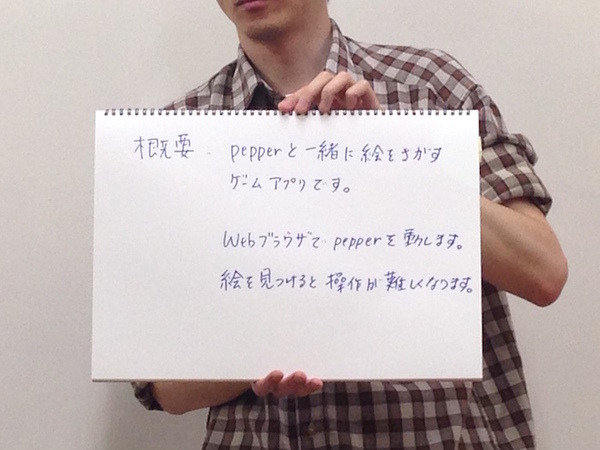 概要. pepperと一緒に絵をさがす
ゲームアプリです。
Webブラウザで pepperを動します。
絵を見つけると操作が難しくなります。